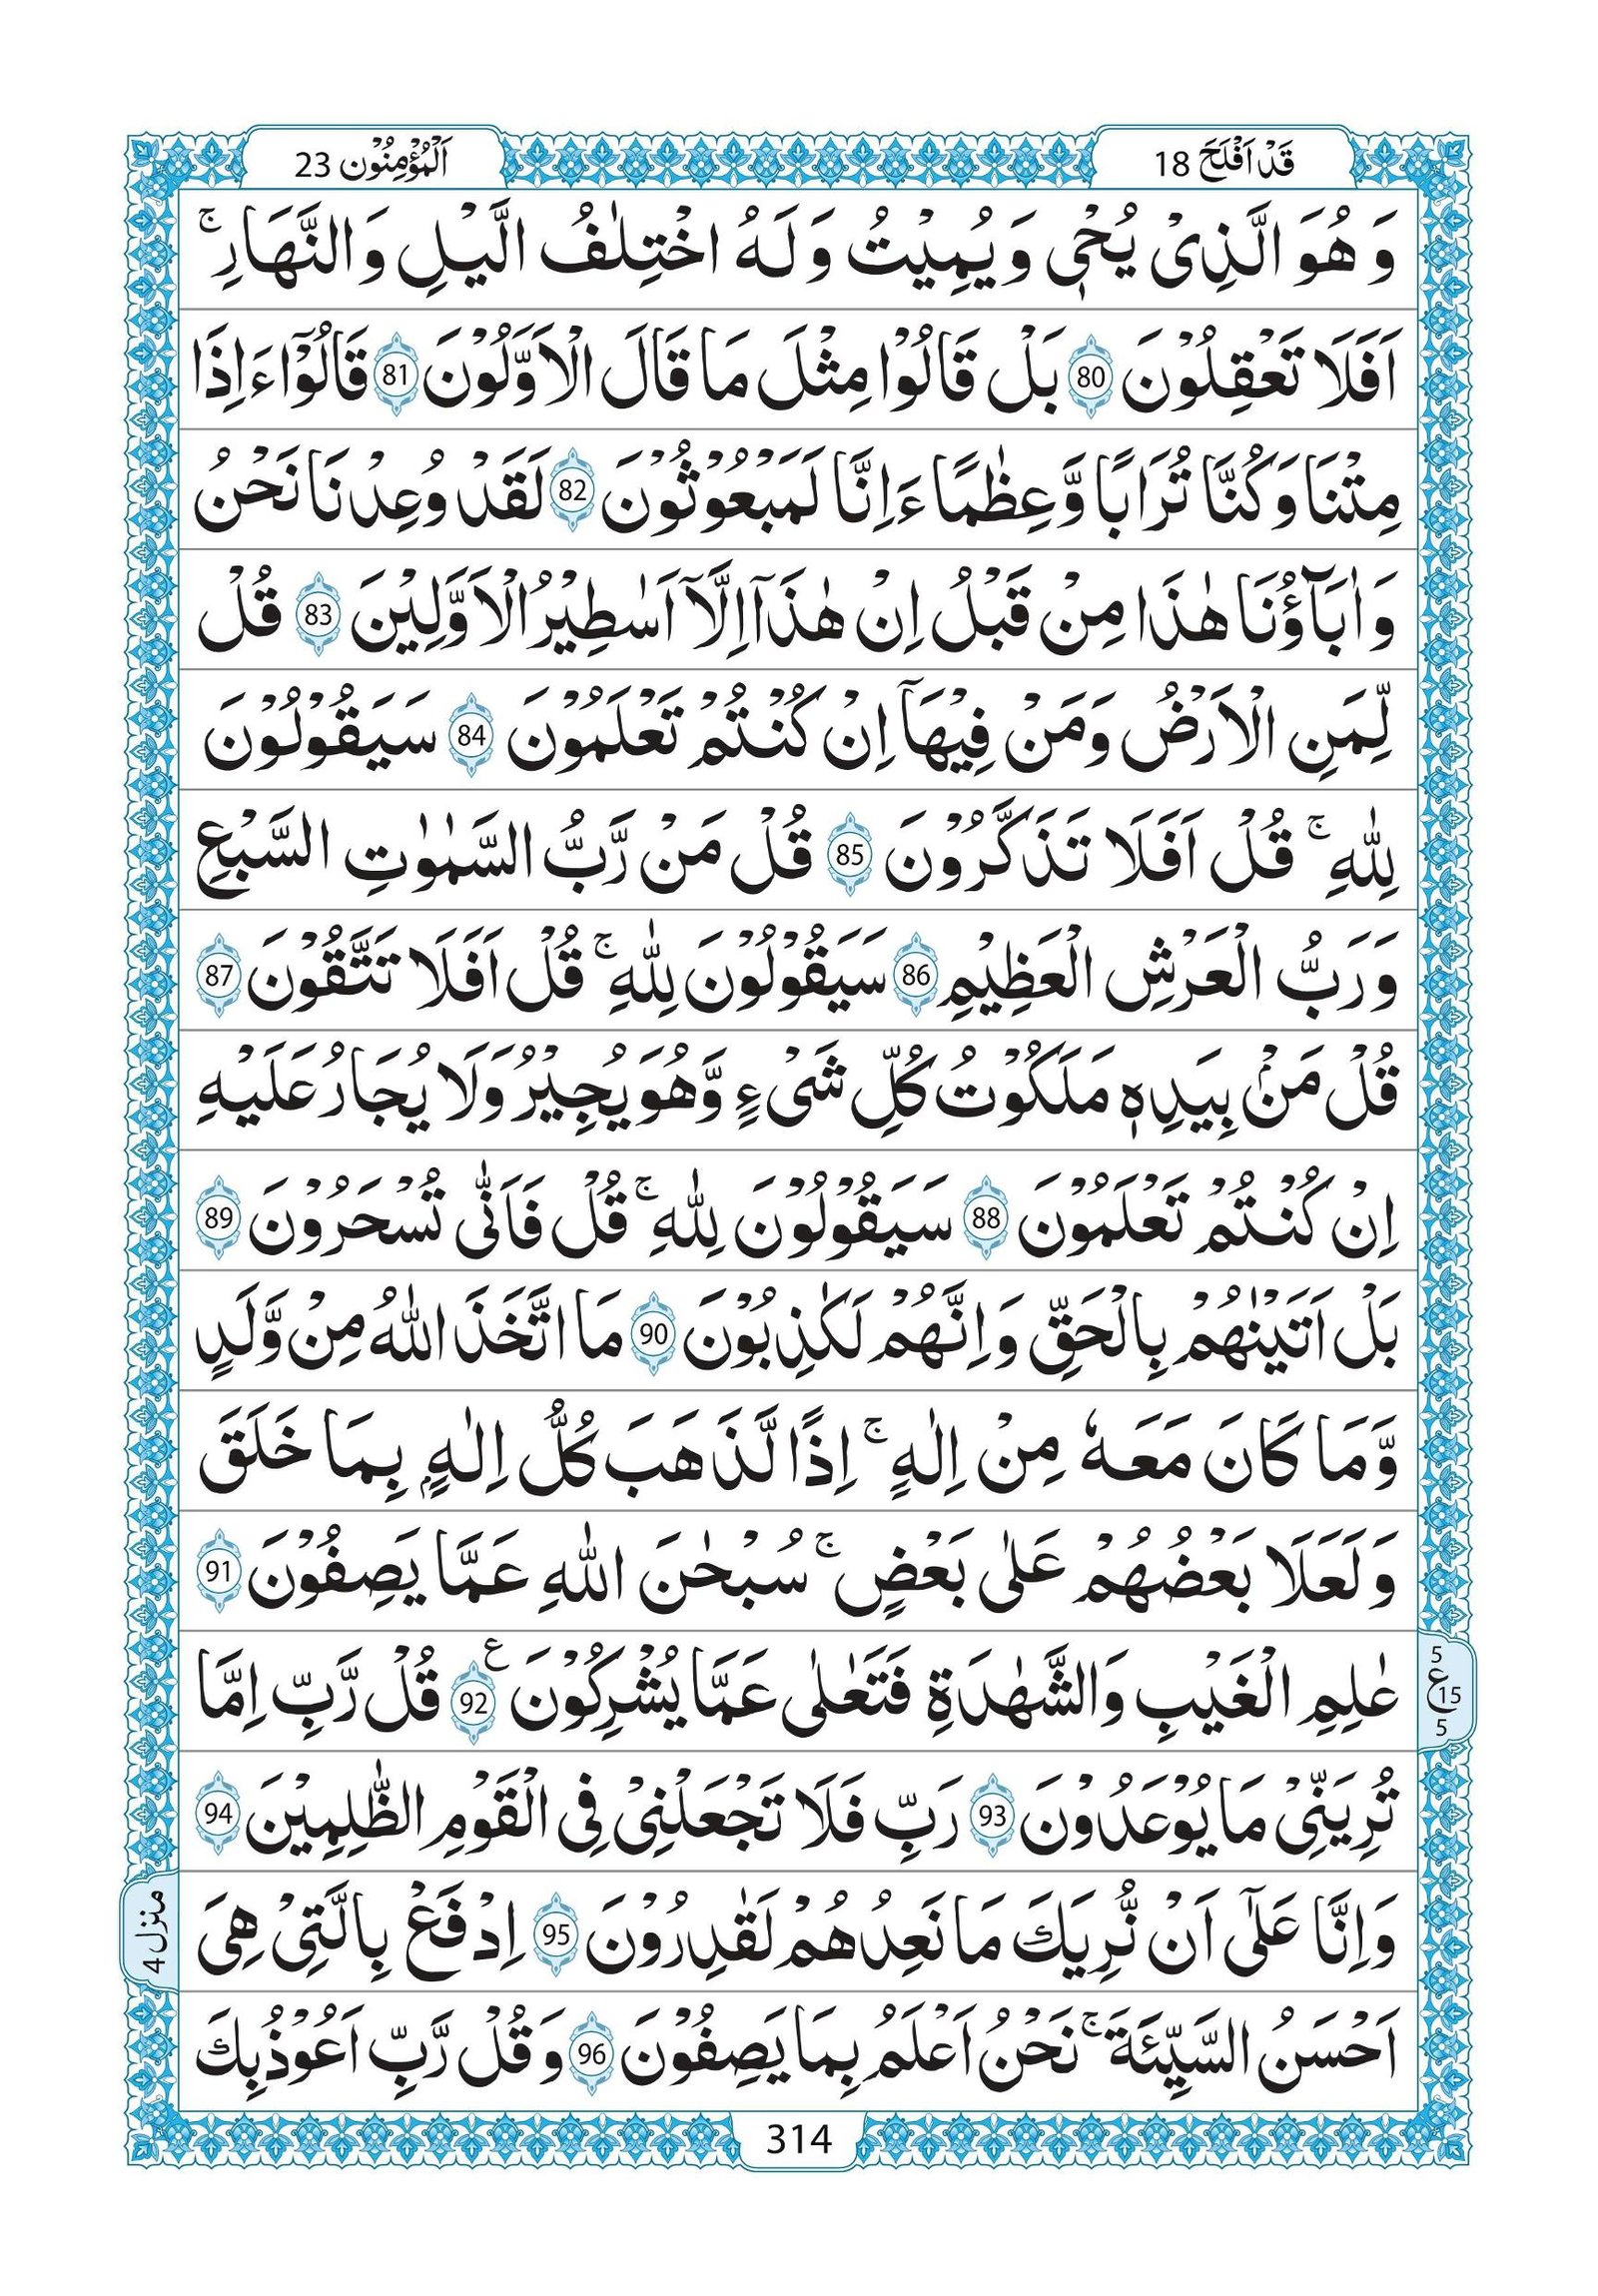 قَدْ اَفْلَحَ 18
اَلْمُؤْمِنُوْن 23
وَ هُوَ الَّذِیْ یُحْیٖ وَ یُمِیْتُ وَ لَهُ اخْتِلٰفُ الَّیْلِ وَ النَّهَارِ ۚ
اَفَلَا تَعْقِلُوْنَ 80 بَلْ قَالُوْا مِثْلَ مَا قَالَ الْاَوَّلُوْنَ 81 قَالُوْۤا ءَاِذَا
مِتْنَا وَ كُنَّا تُرَابًا وَّ عِظٰمًا ءَاِنَّا لَمَبْعُوْثُوْنَ 82 لَقَدْ وُعِدْنَا نَحْنُ
وَ اٰبَآؤُنَا هٰذَا مِنْ قَبْلُ اِنْ هٰذَاۤ اِلَّاۤ اَسٰطِیْرُ الْاَوَّلِیْنَ 83 قُلْ
لِّمَنِ الْاَرْضُ وَ مَنْ فِیْهَاۤ اِنْ كُنْتُمْ تَعْلَمُوْنَ 84 سَیَقُوْلُوْنَ
لِلّٰهِ ۚ قُلْ اَفَلَا تَذَكَّرُوْنَ 85 قُلْ مَنْ رَّبُّ السَّمٰوٰتِ السَّبْعِ
وَ رَبُّ الْعَرْشِ الْعَظِیْمِ 86 سَیَقُوْلُوْنَ لِلّٰهِ ۚ قُلْ اَفَلَا تَتَّقُوْنَ 87
قُلْ مَنْۢ بِیَدِهٖ مَلَكُوْتُ كُلِّ شَیْءٍ وَّ هُوَ یُجِیْرُ وَ لَا یُجَارُ عَلَیْهِ
اِنْ كُنْتُمْ تَعْلَمُوْنَ 88 سَیَقُوْلُوْنَ لِلّٰهِ ۚ قُلْ فَاَنّٰی تُسْحَرُوْنَ 89
بَلْ اَتَیْنٰهُمْ بِالْحَقِّ وَ اِنَّهُمْ لَكٰذِبُوْنَ 90 مَا اتَّخَذَ اللّٰهُ مِنْ وَّلَدٍ
وَّ مَا كَانَ مَعَهٗ مِنْ اِلٰهٍ ۚ اِذًا لَّذَهَبَ كُلُّ اِلٰهٍۭ بِمَا خَلَقَ
وَ لَعَلَا بَعْضُهُمْ عَلٰی بَعْضٍ ۚ سُبْحٰنَ اللّٰهِ عَمَّا یَصِفُوْنَ 91
عٰلِمِ الْغَیْبِ وَ الشَّهٰدَةِ فَتَعٰلٰی عَمَّا یُشْرِكُوْنَ ع 92 قُلْ رَّبِّ اِمَّا
5
ع 15
5
تُرِیَنِّیْ مَا یُوْعَدُوْنَ 93 رَبِّ فَلَا تَجْعَلْنِیْ فِی الْقَوْمِ الظّٰلِمِیْنَ 94
وَ اِنَّا عَلٰۤی اَنْ نُّرِیَكَ مَا نَعِدُهُمْ لَقٰدِرُوْنَ 95 اِدْفَعْ بِالَّتِیْ هِیَ
منزل 4
اَحْسَنُ السَّیِّئَةَ ۚ نَحْنُ اَعْلَمُ بِمَا یَصِفُوْنَ 96 وَ قُلْ رَّبِّ اَعُوْذُ بِكَ
314